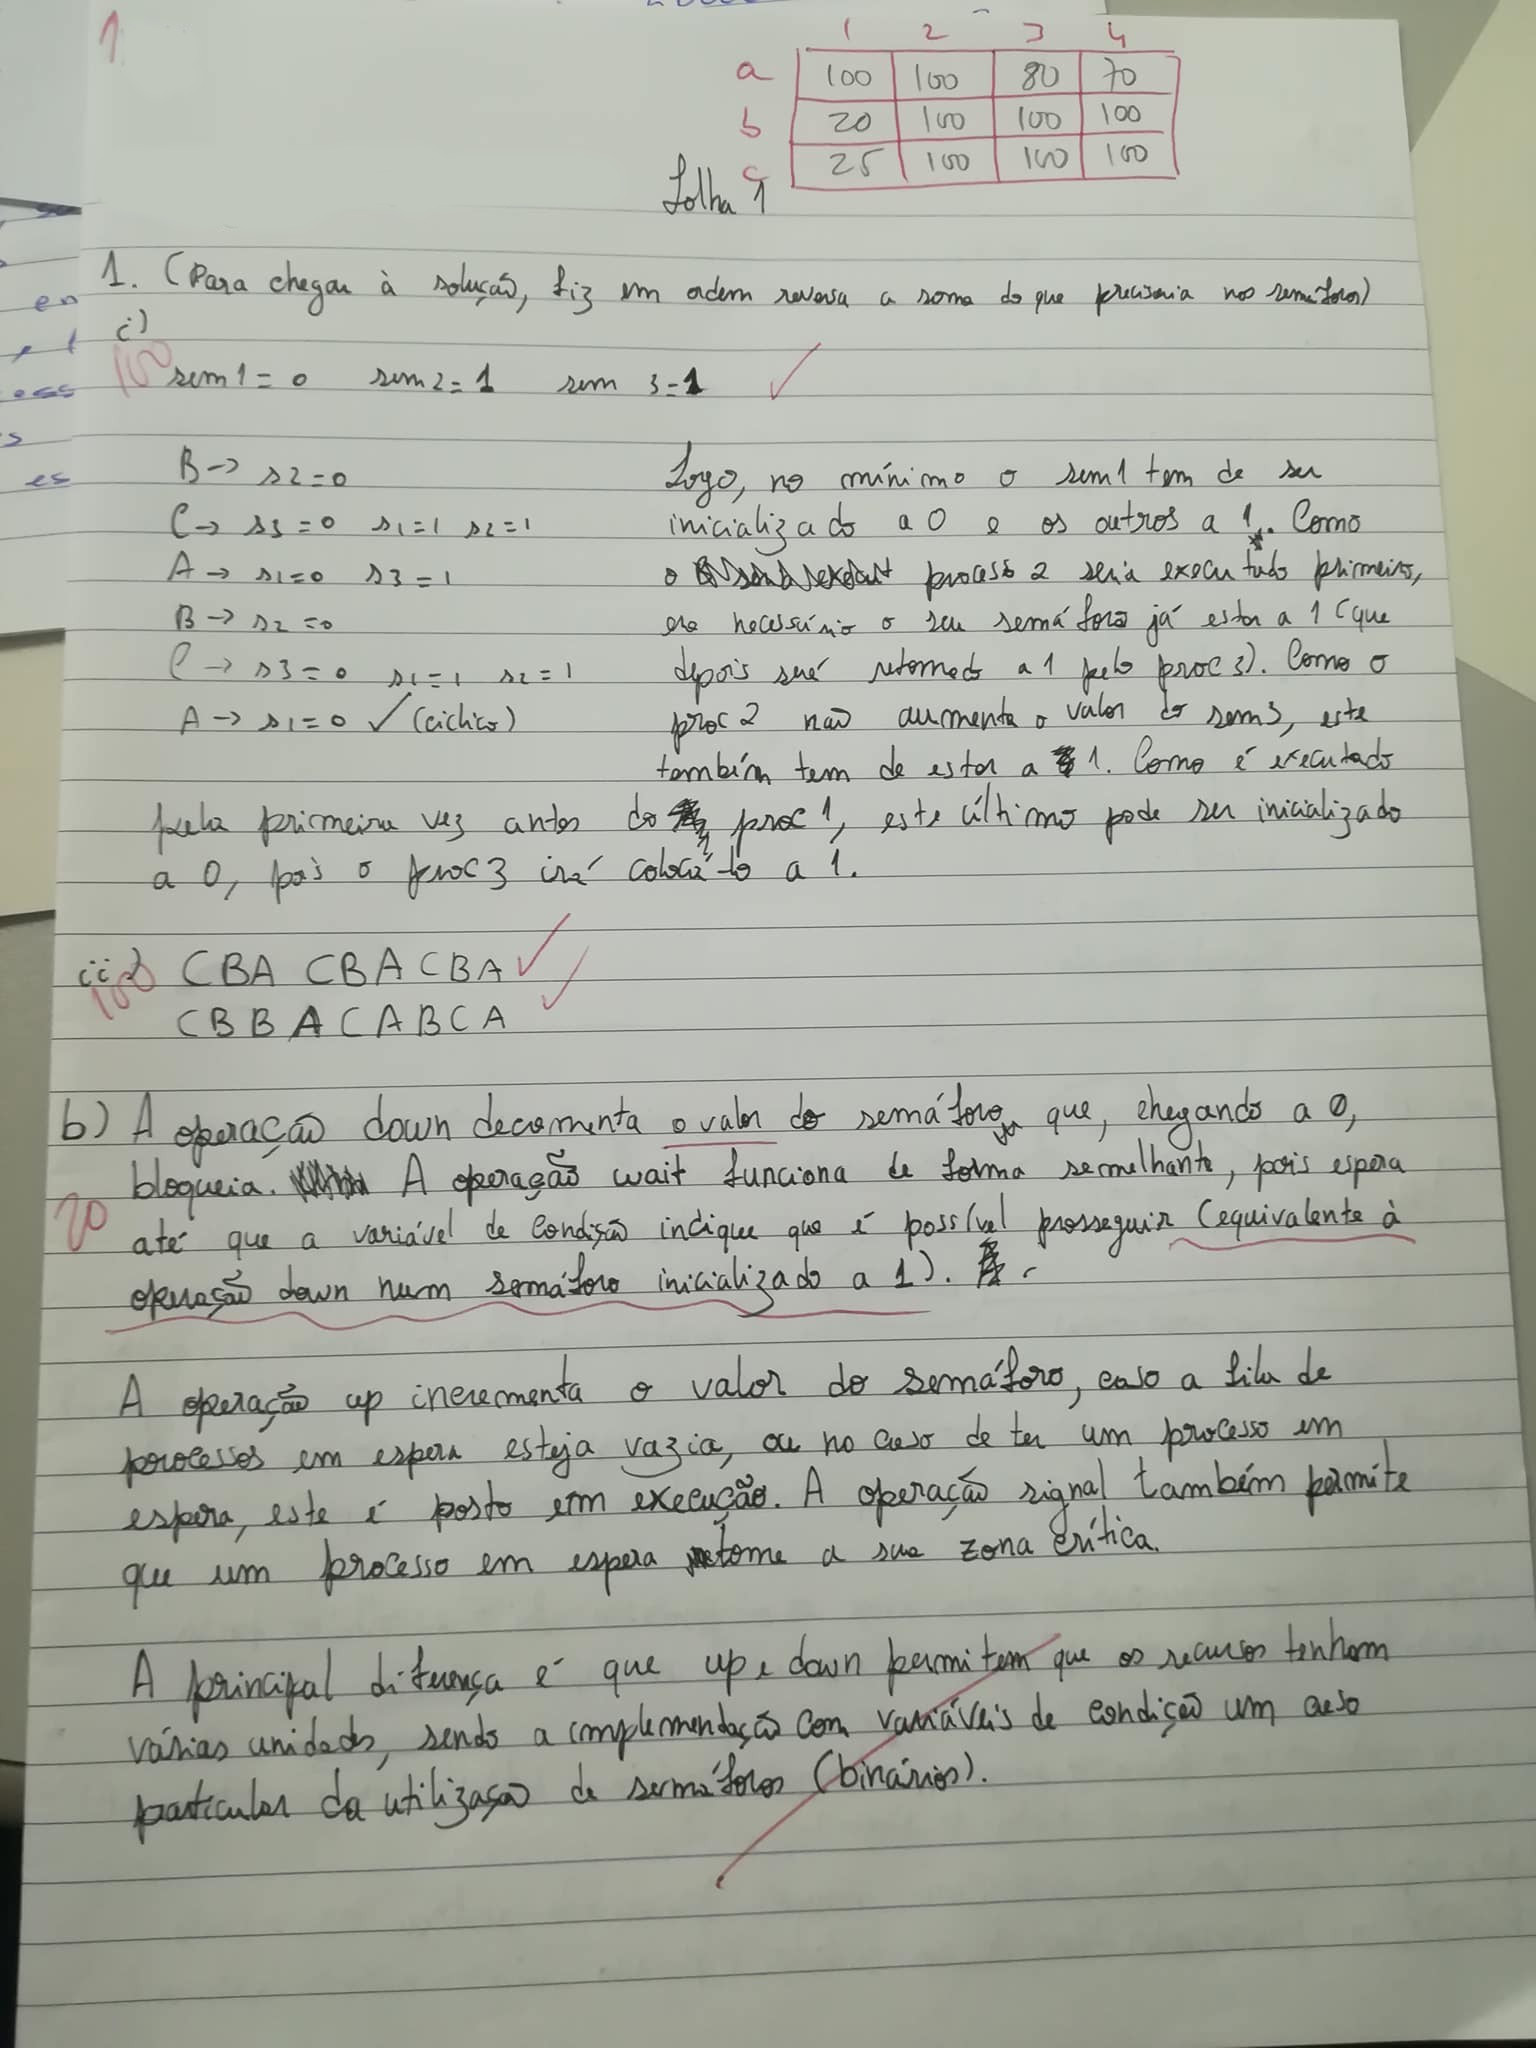 1.
1 2 3 4
a 100 100 80 70
b 20 100 100 100
c 25 100 100 100
Folha 1
1. (Para chegar à solução, fiz em ordem reversa a soma do que precisaria nos semáforos)
i)
100
sem1 = 0 sem2 = 1 sem 3 = 1
B -> s2 = 0
C -> s3 = 0 s1 = 1 s2 = 1
A -> s1 = 0 s3 = 1
B -> s2 = 0
C -> s3 = 0 s1 = 1 s2 = 1
A -> s1 = 0 ✓ (ciclico)
Logo, no mínimo o sem1 tem de ser
inicializado a 0 e os outros a 1. Como
o processo 2 seria executado primeiro,
era necessário o seu semáforo já estar a 1 (que
depois será retomado a 1 pelo proc 3). Como o
proc 2 não aumenta o valor do sem3, este
também tem de estar a 1. Como é executado
pela primeira vez antes do proc 1, este último pode ser inicializado
a 0, pois o proc 3 irá colocá-lo a 1.
ii) CBA CBA CBA
100
CBBACABCA
b) A operação down decrementa o valor do semáforo que, chegando a 0,
bloqueia. A operação wait funciona de forma semelhante, pois espera
20
até que a variável de condição indique que é possível prosseguir (equivalente à
operação down num semáforo inicializado a 1).
A operação up incrementa o valor do semáforo, caso a fila de
processos em espera esteja vazia, ou no caso de ter um processo em
espera, este é posto em execução. A operação signal também permite
que um processo em espera retome a sua zona crítica.
A principal diferença é que up e down permitem que os recursos tenham
várias unidades, sendo a implementação com variáveis de condição um caso
particular da utilização de semáforos (binários).